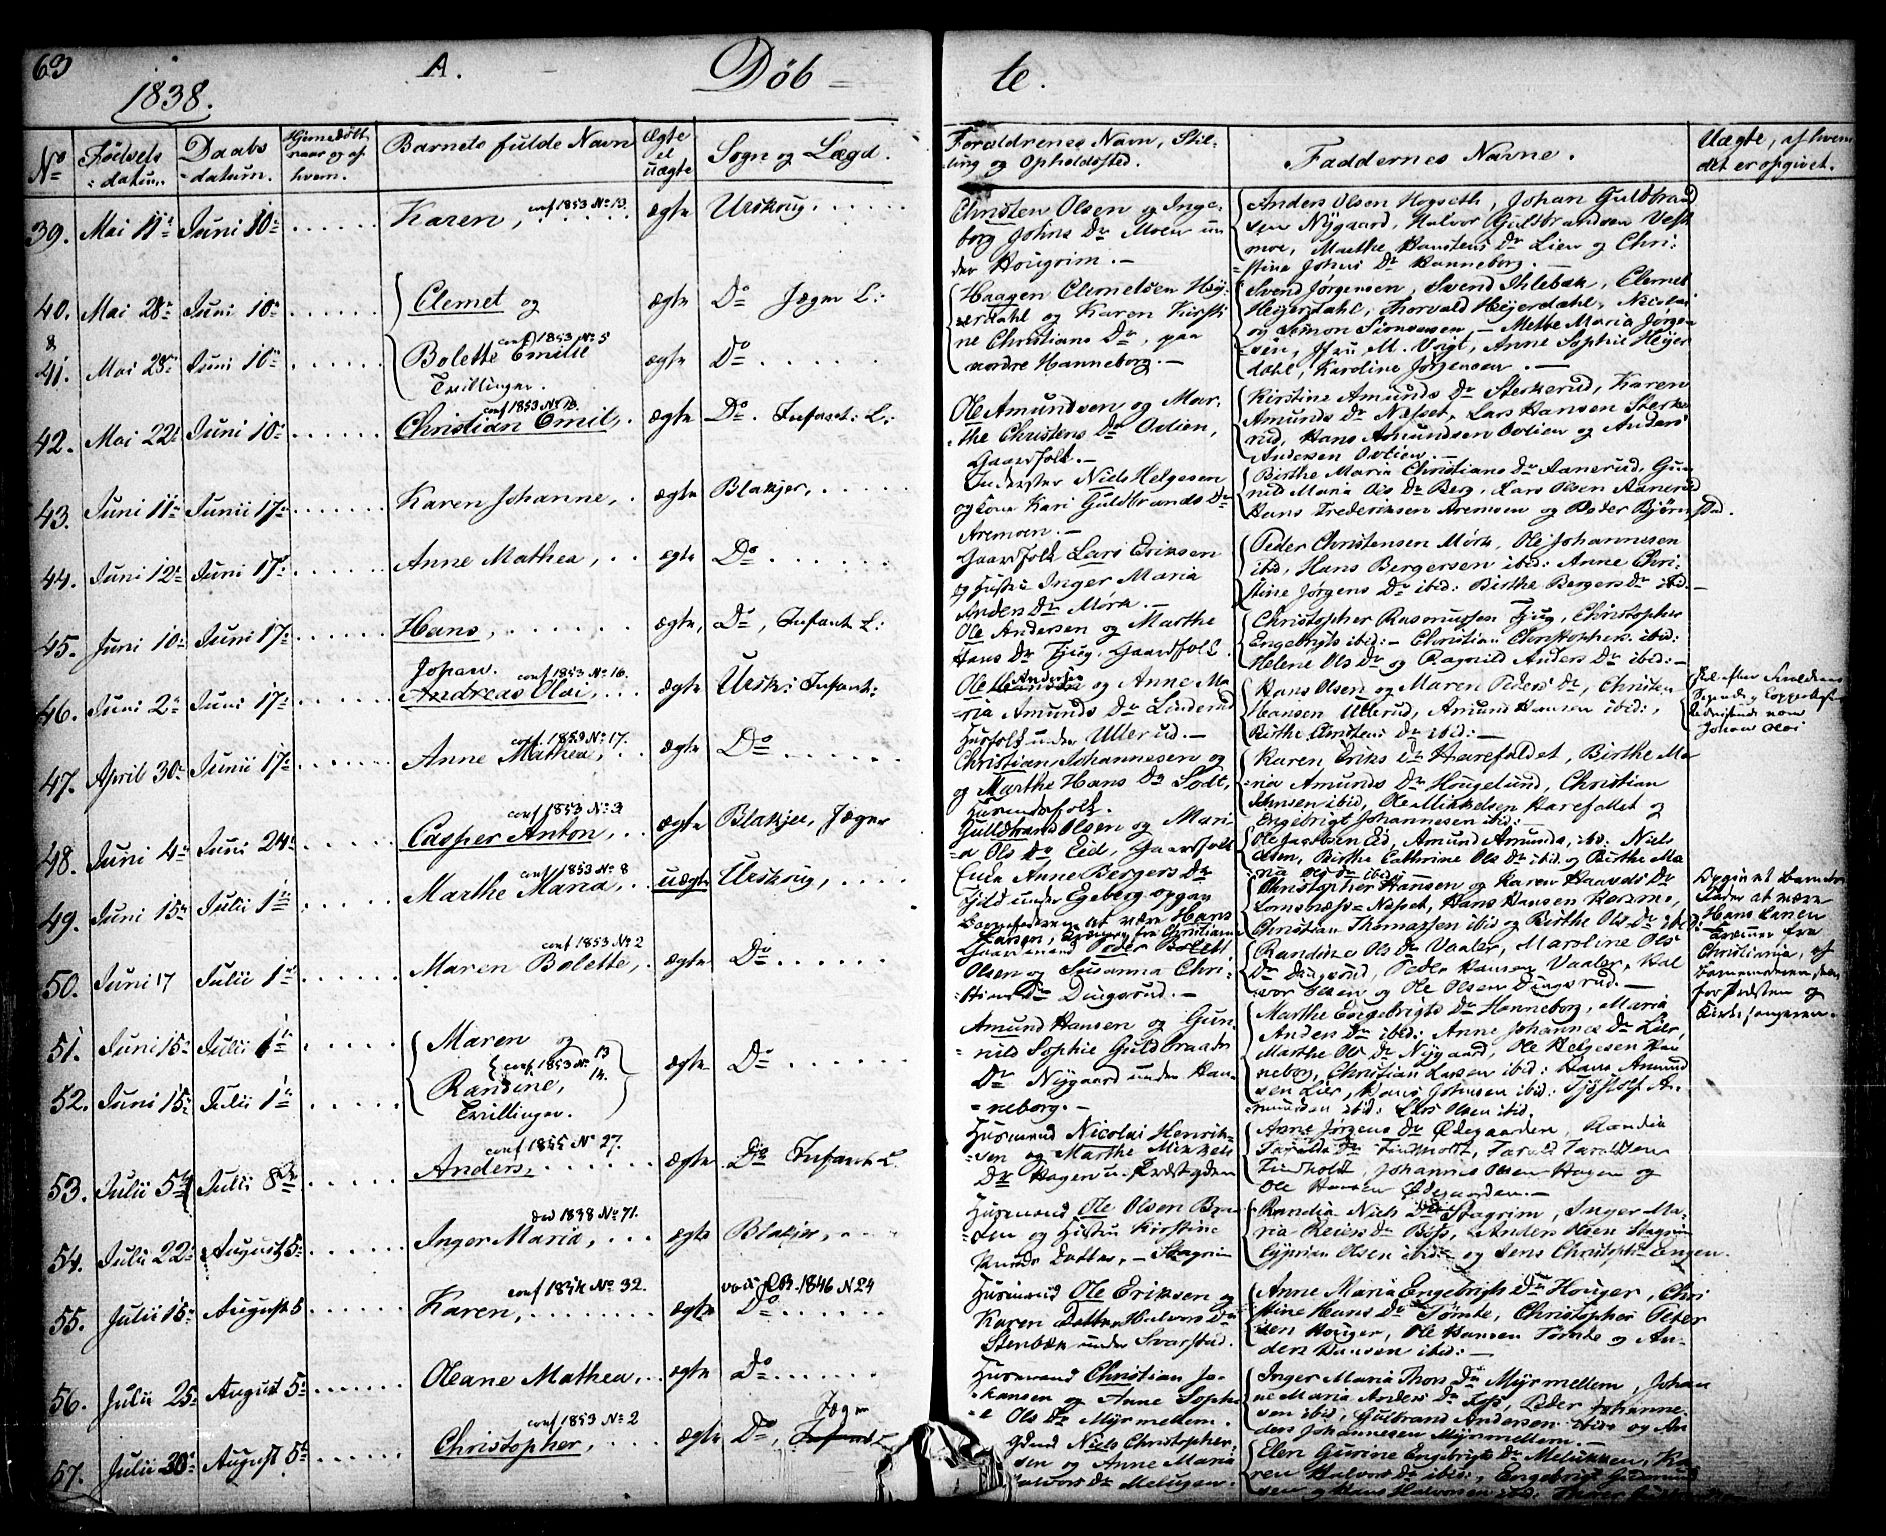 63
1838.
A.
Döb = te.
No
Födsels datum.
Daabs datum.
Hjemedöbt naar og af hvem.
Barnets fulde Navn
Ægte el uægte
Sogn og Lægd.
Forældrenes Navn, Stilling og Opholdssted.
Faddernes Navne.
Uægte, af hvem det er opgivet.
39. Mai 11te Juni 10de Karen, conf 1853 No 13. ægte Urskoug
Christen Olsen og Inge-
borg Johns Dr Moen un
der Hougrim.-
Anders Olsen Hogseth, Johan Guldbrand
sen Nygaard, Halvor Guldbrandsen Vest
moe, Marthe Hanstens Dr Lien og Chri-
stine Johns Dr Hanneborg.-
40. Mai 28de Juni 10de Clemet og ægte Do Jæger L:
& 41. Mai 28de Juni 10de conf 1853 No 5 Bolette Emilie ægte Do
Tvillinger.
Haagen Clemetsen Hey-
erdahl og Karen Kirsti
ne Christians Dr, paa
nordre Hanneborg.-
Svend Jørgensen, Svend Ihlebæk, Clemet
Heyerdahl, Thorvald Heyerdahl, Nicolai
og Simon Simonsen, - Mette Maria Jørgen
sen, Jfru M. Voigt, Anne Sophie Heyer
dahl, Karoline Jørgensen.-
42. Mai 22de Juni 10de conf 1853 No 13. Christian Emil, ægte Do. Infant: L:
Ole Amundsen og Mar-
the Christens Dr Ovlien,
Gaardfolk.-
Kirstine Amunds Dr Sterkerud, Karen
Amunds Dr Næsset, Lars Hansen Sterke
rud, Hans Amundsen Ovlien og Anders
Andersen Ovlien.-
43. Juni 11te Junii 17de Karen Johanne, ægte Blakjer,
Inderster Niels Helgesen
og Kone Kari Guldbrands Dr
Aremoen.-
Birthe Maria Christians Dr Aanerud, Gun
nild Maria Ols Dr Berg, Lars Olsen Aanerud
Hans Frederiksen Aremoen og Peder Björnstad.
44. Juni 12te Juni 17de Anne Mathea, ægte Do
Gaardfolk Lars Eriksen
og Hustru Inger Maria
Anders Dr Mörk.-
Peder Christensen Mörk, Ole Johannesen
ibid, Hans Bergersen ibid: Anne Chri-
stine Jørgens Dr ibid: Birthe Bergers Dr ibid.-
45. Juni 10de Juni 17de Hans, ægte, Do, Infant L:
Ole Andersen og Marthe
Hans Dr Tjug, Gaardfolk.
Christopher Rasmussen Tjug, Christopher
Engebrigts ibid:- Christian Christophers. ibid:
Helene Ols Dr og Ragnild Anders Dr ibid:-
46. Juni 2den Juni 17de Johan conf 1853 No 16. Andreas Olai, ægte Ursk: Infant:
Ole Andersen og Anne Ma
ria Amunds Dr Linderud
Husfolk under Ullerud.-
Hans Olsen og Maren Peders Dr, Christen
Hansen Ullerud, Amund Hansen ibid:,
Birthe Christens Dr ibid:-
Johan Olai
47. April 30te Junii 17de conf 1853 No 17. Anne Mathea, ægte Do
Christian Johannesen og
Marthe Hans Dr Sodt,
Karen Eriks Dr Harefaldet, Birthe Ma
ria Amunds Dr Hougelund, Christian
Jensen ibid, Ole Mikkelsen Harefallet og
Engebrigt Johannesen ibid:-
48. Juni 4de Juni 24de conf 1853 No 3 Casper Anton, ægte Blakjer, Jæger
Guldbrand Olsen og Mari
a Ols Dr Eid, Gaardfolk
Ole Jacobsen Eid, Amund Amunds. ibid: Niels
Olsen, Birthe Cathrine Ols Dr ibid og Birthe Ma
ria Ols Dr ibid:-
49. Juni 15de Julii 1ste conf 1853 No 8 Marthe Maria, uægte Urskoug,
Anne Bergers Dr
under Egeberg opgav
Barnefaderen at være Hans
Larsen, fra Christiania
Christopher Hansen og Karen Haavels Dr
Næsset, Hans Hansen
Christian Thomassen ibid og Birthe Ols Dr ibid:
Opgivet Barnets
Fader at være
Hans Larsen
fra
Christiania, af
Barnemoderen,
for Præsten og
Kirkesangeren.
50. Juni 17 Julii 1ste conf 1853 No 2 Maren Bolette, ægte Do
Gaardmand Peder Bolett
Olsen og Susanna Chri-
stians Dr Dingsrud.-
Randine Ols Dr Vaaler, Maroline Ols
Dr Dingsrud, Peder Hansen Vaaler, Hal
vor Olsen og Ole Olsen Dingsrud.-
51. Juni 15de Julii 1ste Maren og
conf 1853 No 13 14.
52. Juni 15de Julii 1ste Randine, Tvillinger. ægte Do
Amund Hansen og Gun-
nild Sophie Guldbrands
Dr Nygaard under Han-
neborg.-
Marthe Engebrigts Dr Hanneborg, Maria
Anders Dr ibid: Anne Johannes Dr Lier,
Marthe Ols Dr Nygaard, Ole Helgesen Han
neborg, Christian Larsen ibid: Hans Amund
sen Lier, Hans Johnsen ibid: Tjöstolf A-
mundsen ibid: Lars Olsen ibid.
53. Julii 5te Julii 8de conf 1855 No 27. Anders, ægte Do Infant L.
Husmand Nicolai Henrik-
sen og Marthe Mikkels
Dr Hagen u. Præstgden
Anne Jørgens Dr Ødegaarden, Randia
Taralds Dr Finholt, Tarald Taraldsen
Finholdt, Johannes Olsen Hagen og
Ole Hansen Ødegaarden.-
54. Julii 22de August 5te död 1838 No 71. Inger Maria, ægte Blakjer,
Husmand Ole Olsen
og Hustru Kirstine
Knuds Datter, - Skagrim
Randia Niels Dr Skagrim, Inger Ma-
ria Reiers Dr Anders Olsen Skagrim
Cyprian Olsen ibid: og Jens Christoph: Engen.
55. Julii 15de August 5 conf 1854 No 32. Karen, ægte Do
vacc C.B. 1846 No 24
Husmand Ole Eriksen og
Karen Datter Halvors Dr
Stenbæk under Svarstad.
Anne Maria Engebrigts Dr Houger, Chri
stine Hans Dr Tömte, Christopher Peter
sen Houger, Ole Hansen Tömte og An-
ders Hansen ibid:-
56. Julii 25de August 5te Oleane Mathea, ægte Do
Husmand Christian Jo-
hansen og Anne Sophi-
e Ols Dr Myrmellem.
Inger Maria Thors Dr Myrmellem, Johan
ne Maria Anders Dr Peder Johanne-
sen ibid, Gulbrand Andersen ibid og An
ders Johannesen Myrmellem.-
57. Julii 30te August 5te conf 1853 No 2 Christopher, ægte Do, Jæger Infant L
Niels Christopher-
sen og Anne Maria
Halvors Dr Melugen.
Elen Gurine Engebrigts Dr Melukken, Ka-
ren Halvors Dr ibid:, Engebrigt
sen og Hans Halvorsen ibid: